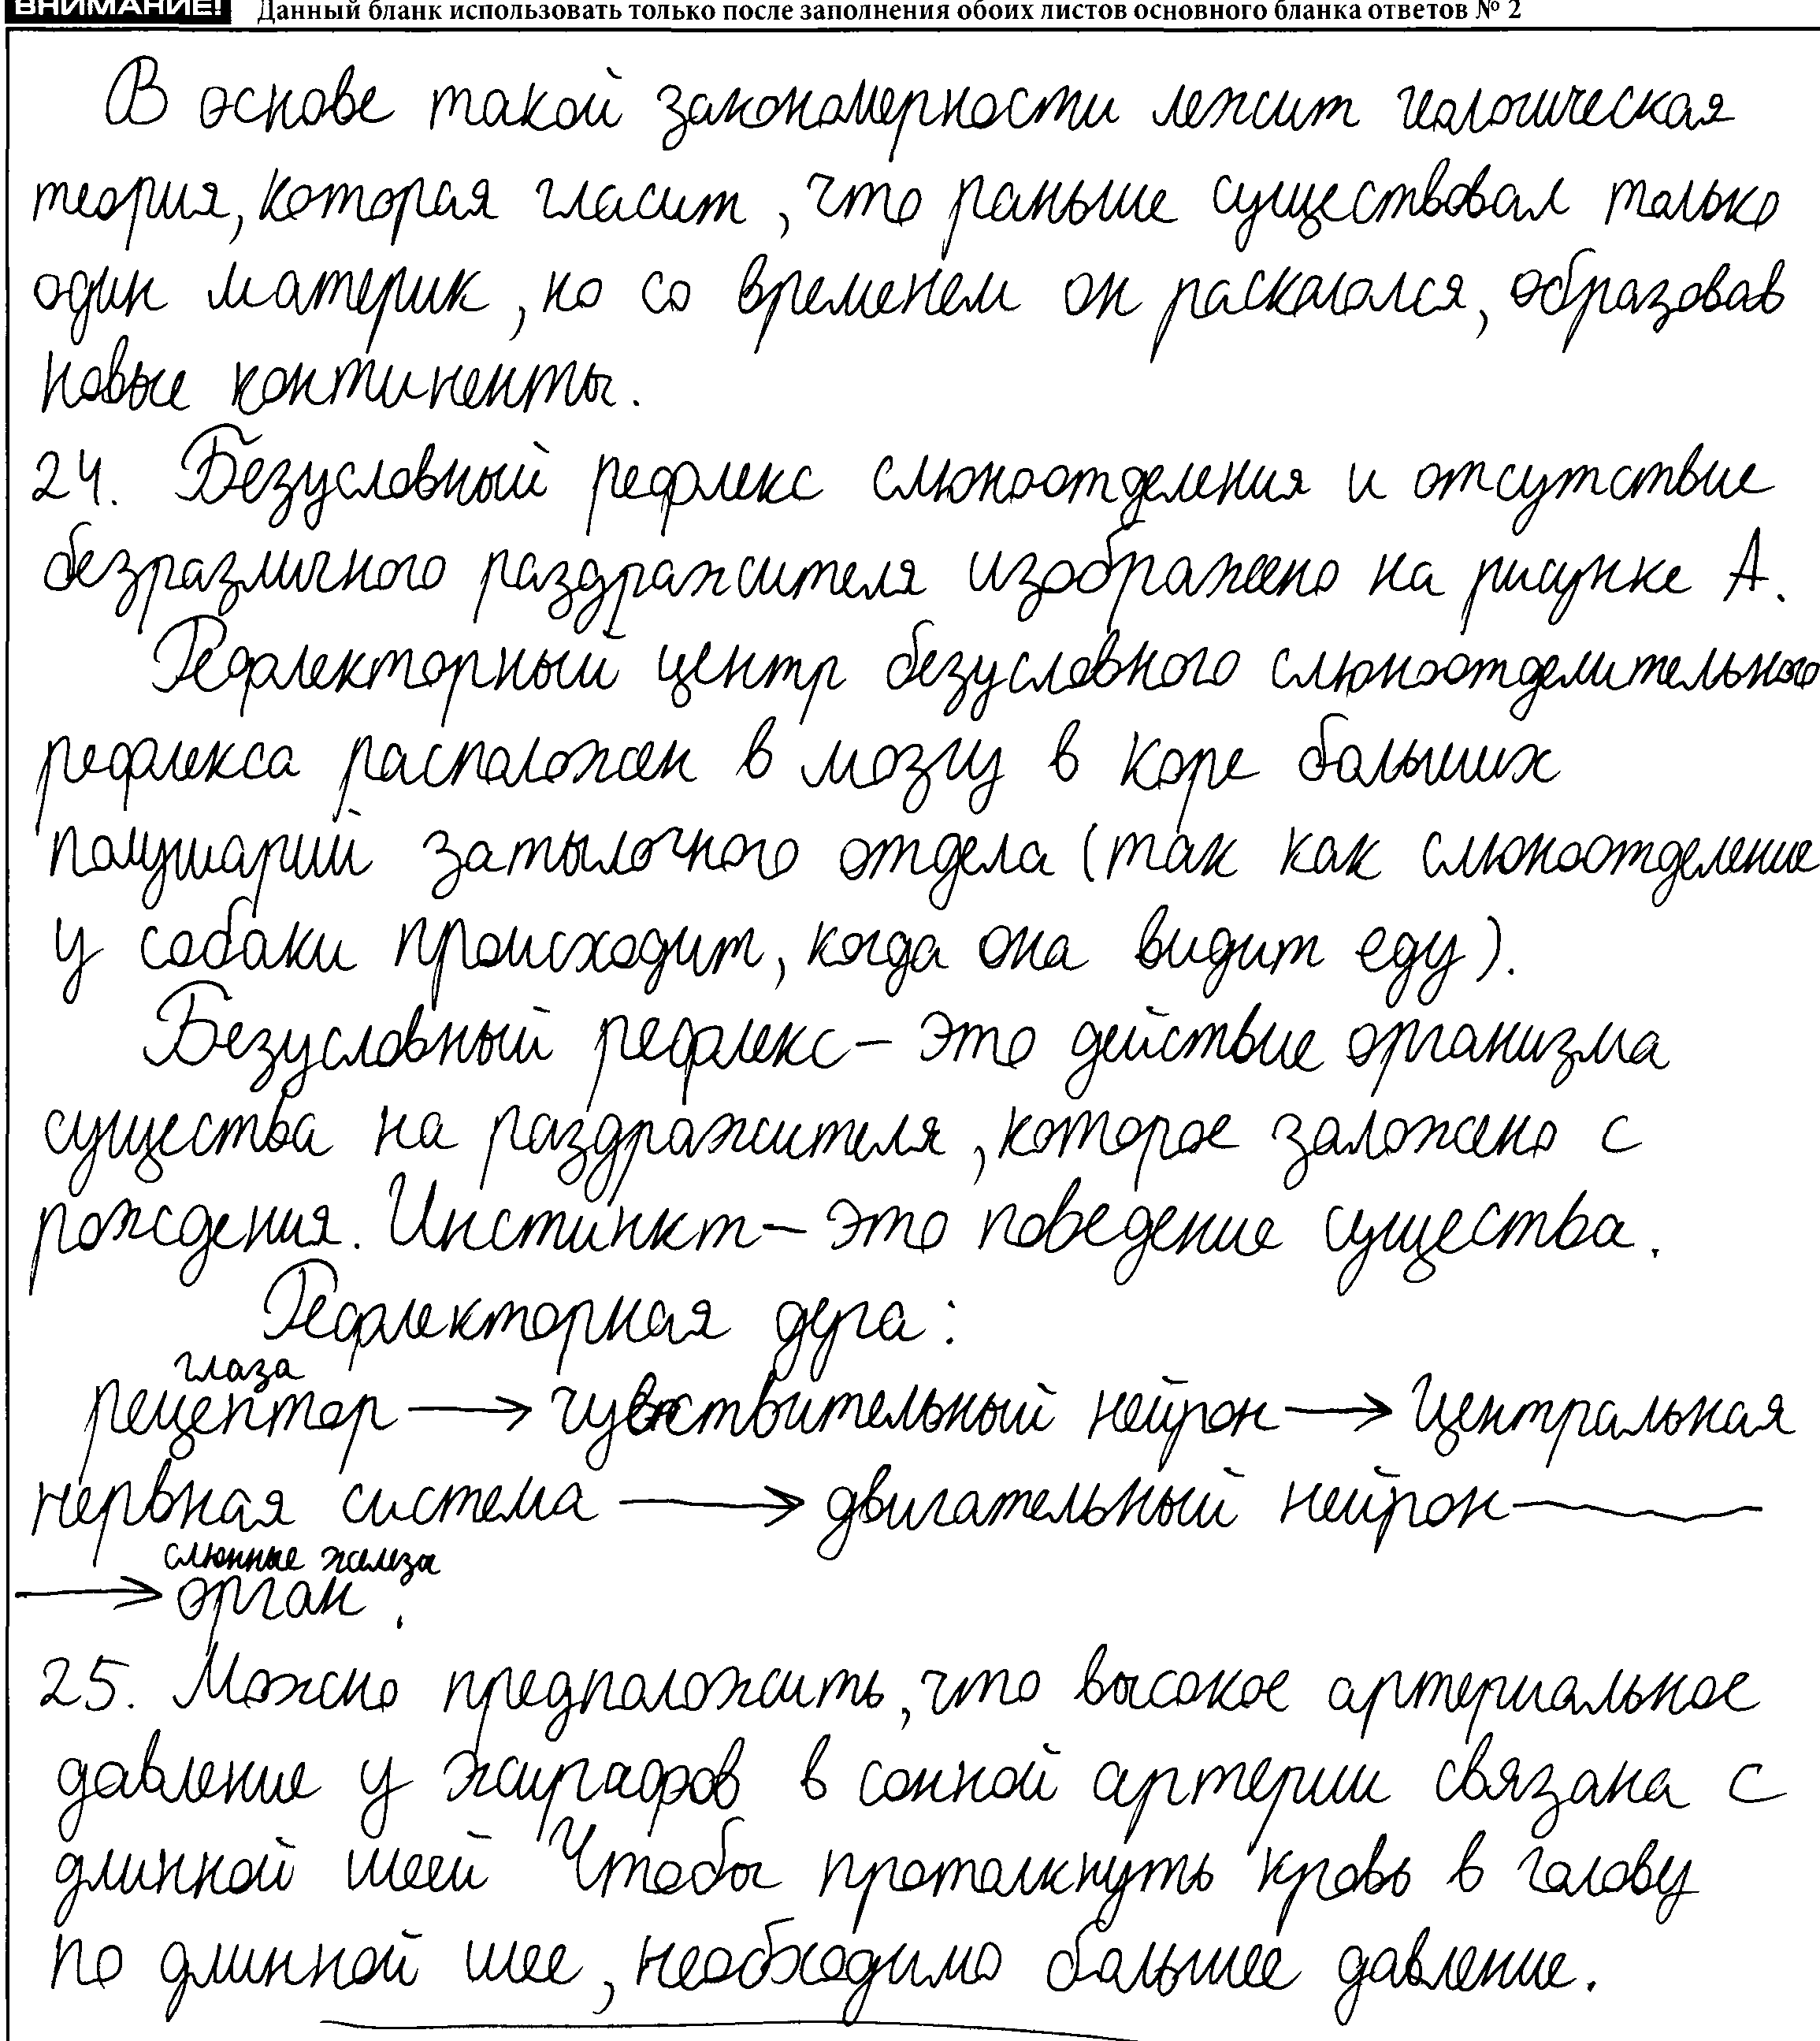 ВНИМАНИЕ! Данный бланк использовать только после заполнения обоих листов основного бланка ответов № 2
В основе такой закономерности лежит геологическая
теория, которая гласит, что раньше существовал только
один материк, но со временем он раскололся, образовав
новые континенты.
24. Безусловный рефлекс слюноотделения и отсутствие
безразличного раздражителя изображено на рисунке А.
Рефлекторный центр безусловного слюноотделительного
рефлекса расположен в мозгу в коре больших
полушарий затылочного отдела (так как слюноотделение
у собаки происходит, когда она видит еду).
Безусловный рефлекс – это действие организма
существа на раздражителя, которое заложено с
рождения. Инстинкт – это поведение существа.
Рефлекторная дуга:
глаза
рецептор → чувствительный нейрон → центральная
нервная система → двигательный нейрон —
слюнные железа
→ орган.
25. Можно предположить, что высокое артериальное
давление у жирафов в сонной артерии связана с
длинной шеей Чтобы протолкнуть кровь в голову
по длинной шее, необходимо большее давление.